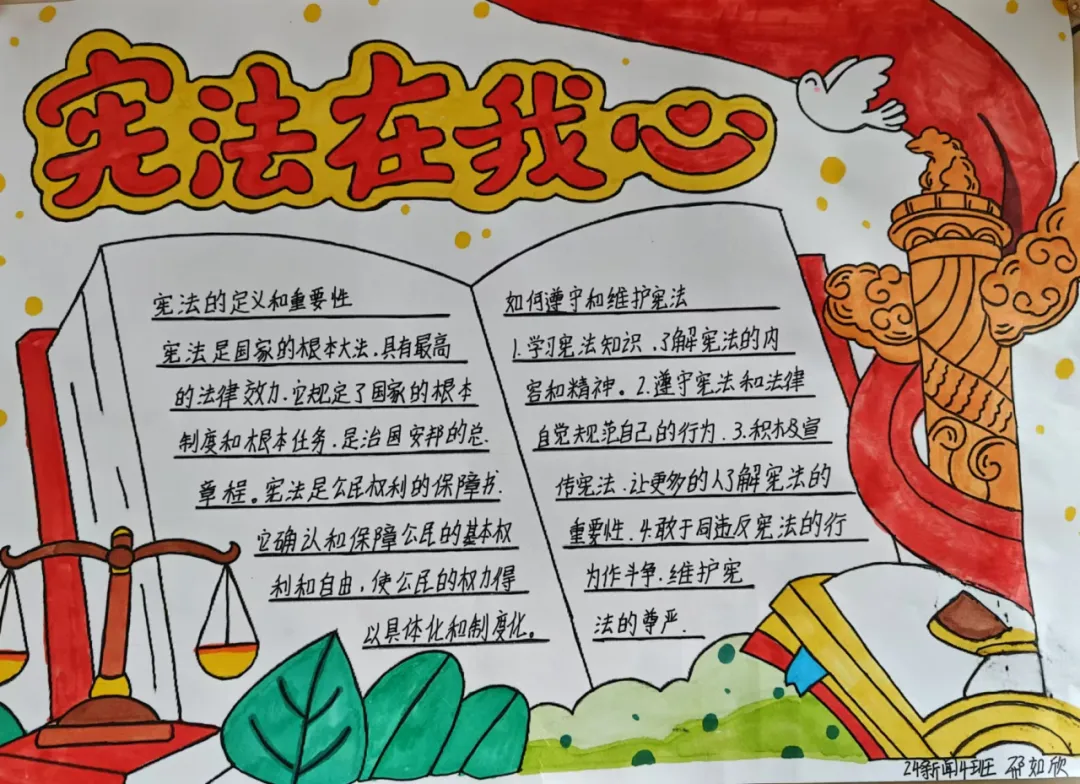 宪法在我心
宪法的定义和重要性
宪法是国家的根本大法.具有最高
的法律效力.它规定了国家的根本
制度和根本任务.是治国安邦的总
章程。宪法是公民权利的保障书.
它确认和保障公民的基本权
利和自由,使公民的权力得
以具体化和制度化。
如何遵守和维护宪法
1.学习宪法知识.了解宪法的内
容和精神。2.遵守宪法和法律
自觉规范自己的行为.3.积极宣
传宪法.让更多的人了解宪法的
重要性.4.敢于同违反宪法的行
为作斗争.维护宪
法的尊严.
24新闻4班 邳如欣